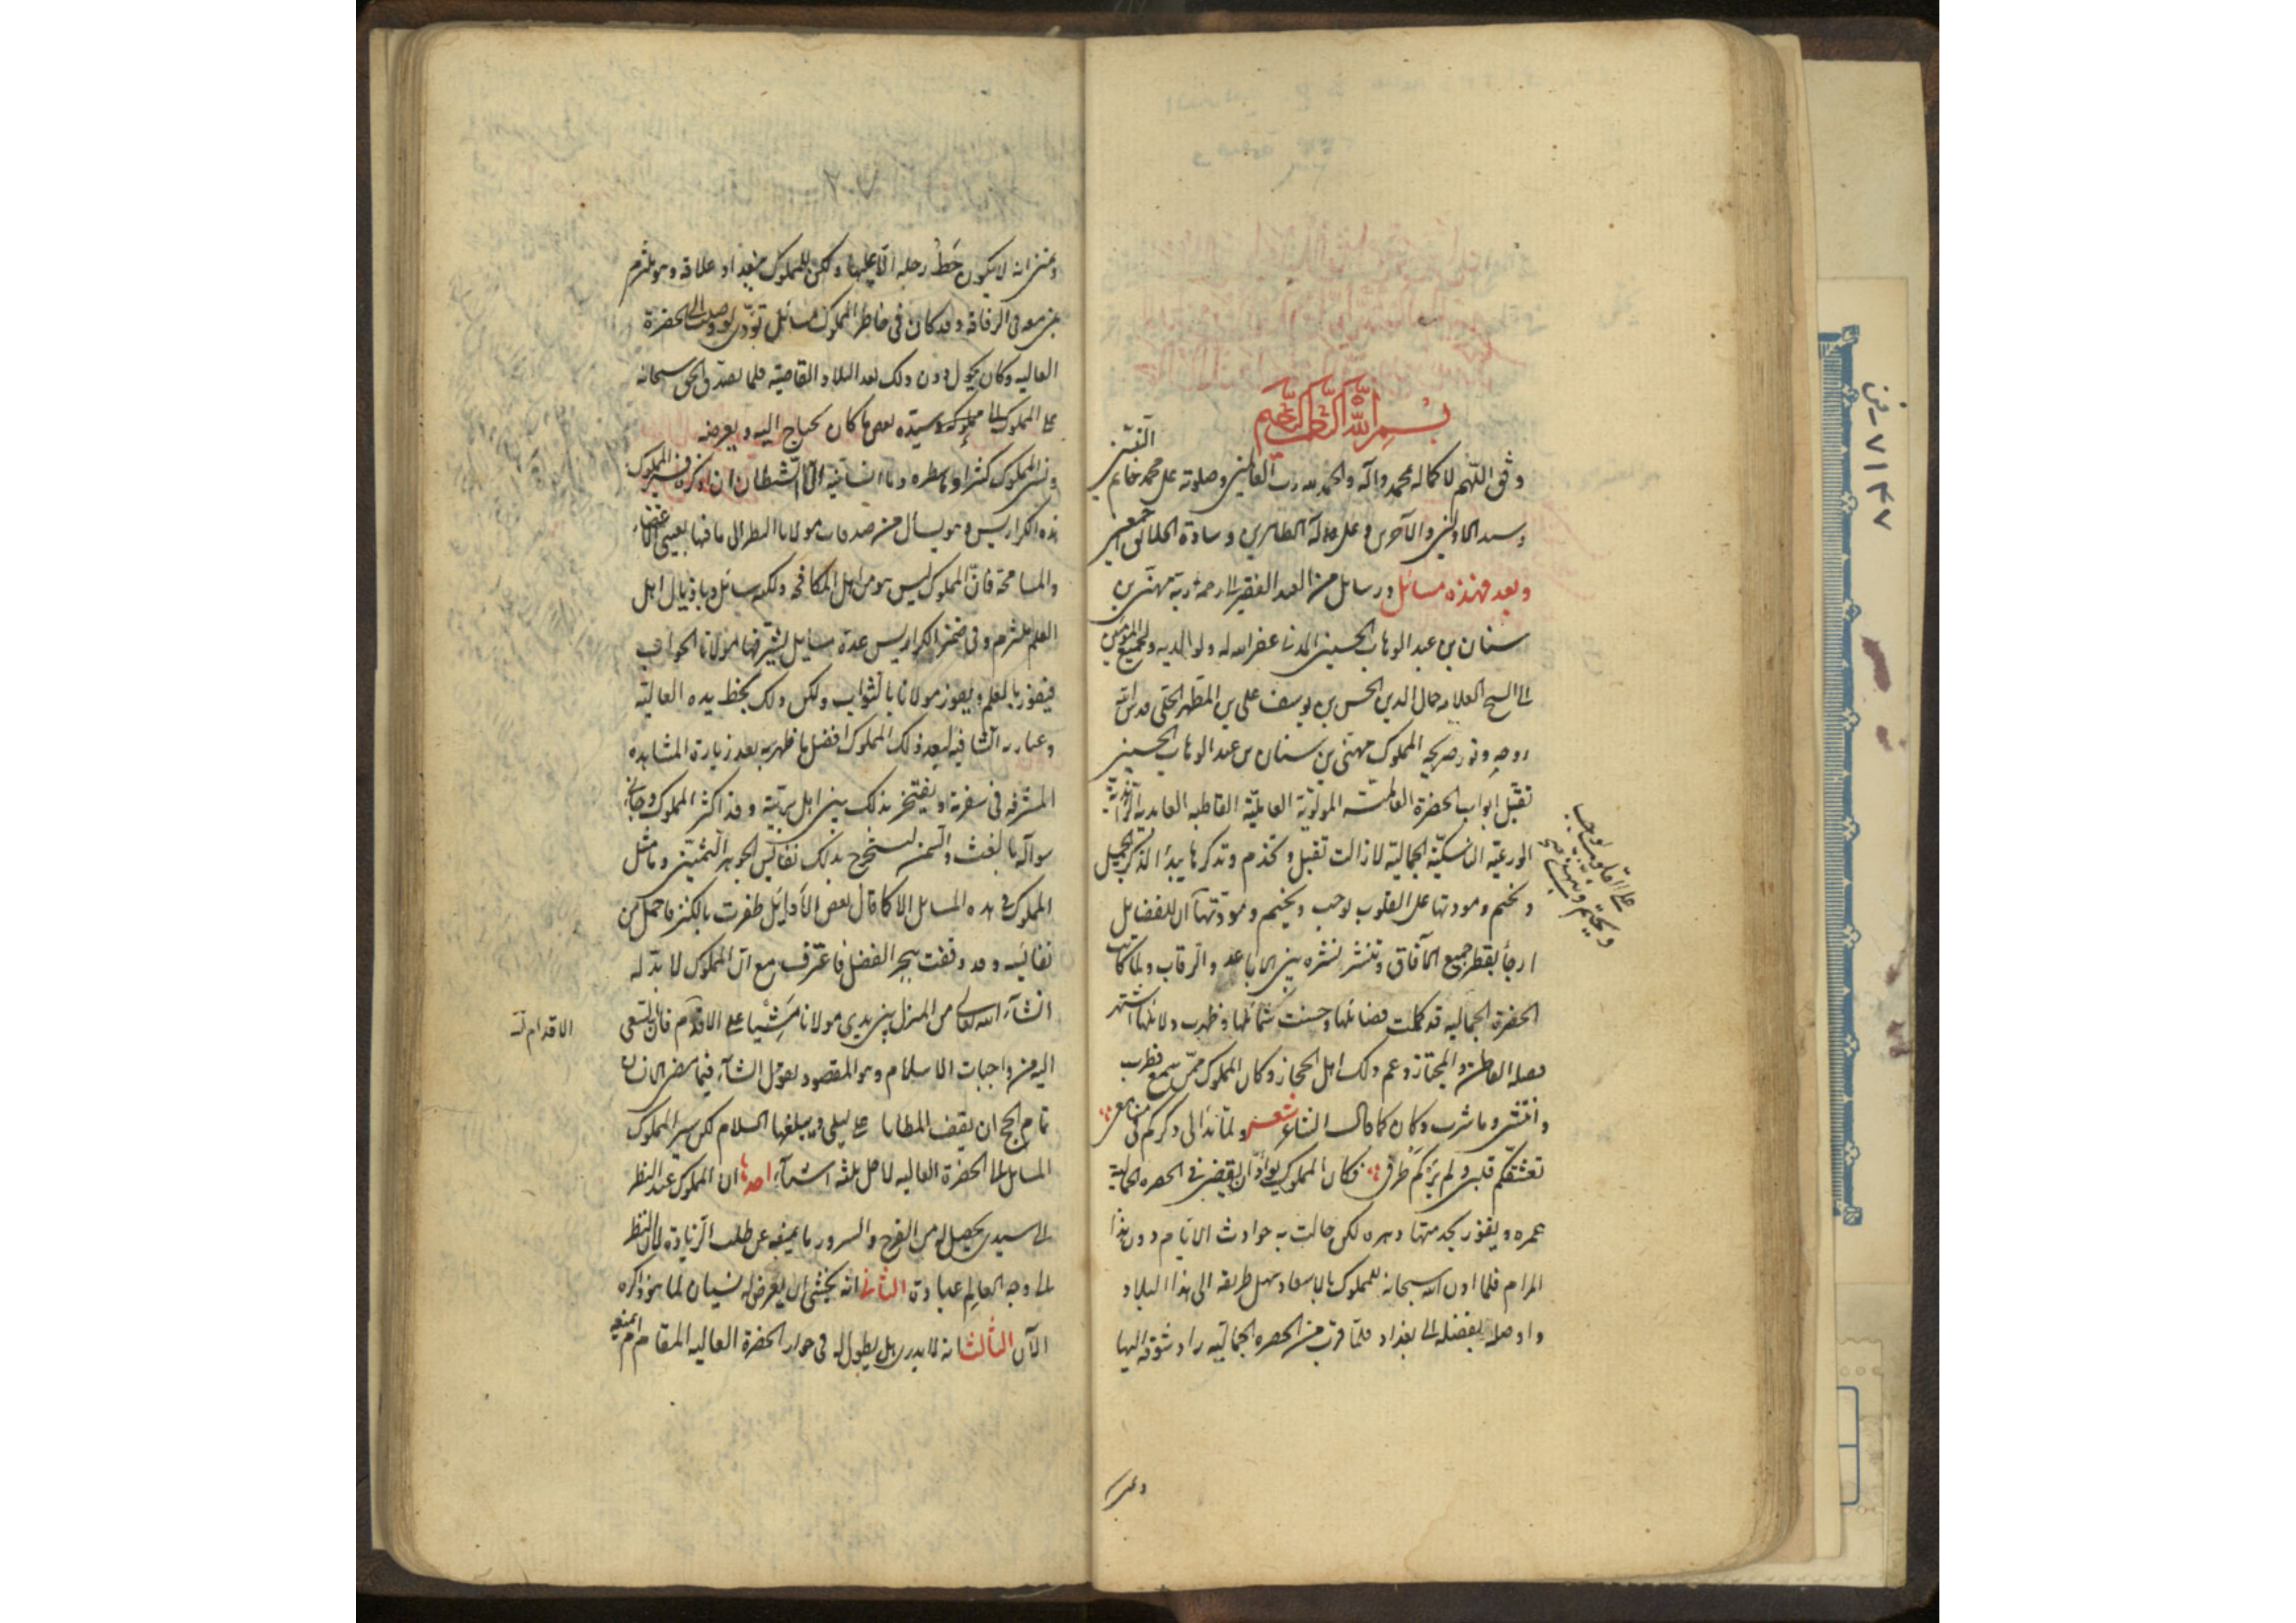 بسم الله الرحمن الرحيم
وفق اللهم لاكماله بمحمد وآله والحمد لله رب العالمين وصلوته على محمد خاتم النبيين
وسيد الاولين والآخرين وعلى آله الطاهرين وسادة الخلائق اجمعين
وبعد فهذه مسائل ورسائل من العبد الفقير الى رحمة ربه مهنى بن
سنان بن عبد الوهاب الحسينى المدنى غفر الله له ولوالديه ولجميع المؤمنين
الى الشيخ العلامه جمال الدين الحسن بن يوسف على بن المطهر الحلى قدس الله
روحه ونور ضريحه المملوك مهنى بن سنان بن عبد الوهاب الحسينى
تقبل ابواب الحضرة العالمية المولوية العاملية الفاطمية العابدية الزاهدية
الورعية الناسكية الجمالية لا زالت تقبل وتخدم وتذكر بها يبدأ الذكر الجميل
ويختم ومودتها على القلوب توجب ويختم ومودتها ان للفضايل
ارجأ يقطر جميع الآفاق وتنشر نشره بين الاباعد والرقاب ولما كانت
الحضرة الجماليه قد كملت فضائلها وحسنت شمائلها وظهرت دلائلها اشتهر
فضلها القاطن والمجتاز وعم ذلك اهل الحجاز وكان المملوك ممن سمع فطرب
وانتشى وما شرب وكان كما قال الشاعر شعر ولما بدا لى ذكركم فى مسامعى
تعشقكم قلبى ولم يركم طرفى فكان المملوك يود ان يقضى فى الحضره الجمالية
عمره ويفوز بخدمتها دهره لكن حالت به حوادث الايام دون هذا
المرام فلما اذن الله سبحانه للمملوك بالاسعاد وسهل طريقه الى هذا البلاد
واوصله بفضله الى بغداد فلما قرب من الحضره الجماليه زاد شوقه اليها
على القلوب توجب
وعزم
وعزم انه لا يكون حط رحله الا عليها ولكن للمملوك ببغداد علاقه وهو ملتزم
بمن معه فى الرفاقه وقد كان فى خاطر المملوك مسائل تؤدى لو وصلت الى الحضرة
العاليه وكان يحول دون ذلك بعد البلاد القاصية فلما تصدق الحق سبحانه
على المملوك الى مملوكه وسيده بعض ما كان يحتاج اليه ويعرضه
ونسى المملوك كثيرا وما سطره وما انسانيه الا الشيطان ان اذكره فسير المملوك
هذه الكراريس وهو يسأل من صدقات مولانا النظر الى ما فيها بعين الاغضاء
والمسامحة فان المملوك ليس هو من اهل المكافحه ولكنه سائل وباذيال اهل
العلم ملتزم وفى ضمن الكراريس عدة مسايل يشرفها مولانا الجواب
فيفوز بالعلم ويفوز مولانا بالثواب وليكن ذلك بخط يده العالية
وعبارته الشافيه ليعد ذلك المملوك افضل ما ظفر به بعد زيارة المشاهده
المشرفه فى سفرته ويفتخر بذلك بين اهل بريته وقد اكثر المملوك وجاء
سؤاله بالغث والسمين ليستخرج بذلك نفائس الجوهر الثمين وما مثل
المملوك فى هذه المسايل الا كما قال بعض الأوائل ظفرت بالكنز فاحمل من
نفائسه وقد وقفت ببحر الفضل فاغترف مع ان المملوك لا بد له
انشاء الله تعالى من المنزل بين يدى مولانا مشيا على الاقدام فان السعى
اليه من واجبات الاسلام وهو المقصود بقول الشاعر فيما مضى من الزمان
تمام الحج ان يقف المطايا على ليلى ويبلغها السلام لكن سير المملوك
المسايل الى الحضرة العاليه لاجل ثلثة اشياء احدها ان المملوك عند النظر
الى سيدى يحصل له من الفرح والسرور ما يمنعه عن طلب الزيادة لان النظر
الى وجه العالم عبادة الثانى انه يخشى ان يعرض له نسيان لما هو ذاكره
الآن الثالث انه لا يدرى هل يطول له فى جوار الحضرة العاليه المقام ام يمنعه
الاقدام
٧١٣٧ - ن